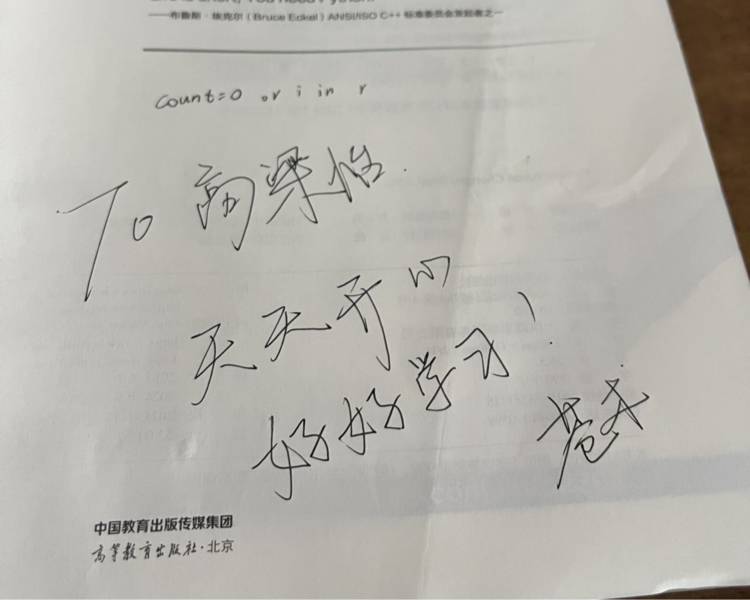 ——布鲁斯·埃克尔（Bruce Eckel）ANSI/ISO C++ 标准委员会发起者之一
count=0 or i in r
To 高梁怡
天天开心
好好学习！
中国教育出版传媒集团
高等教育出版社·北京